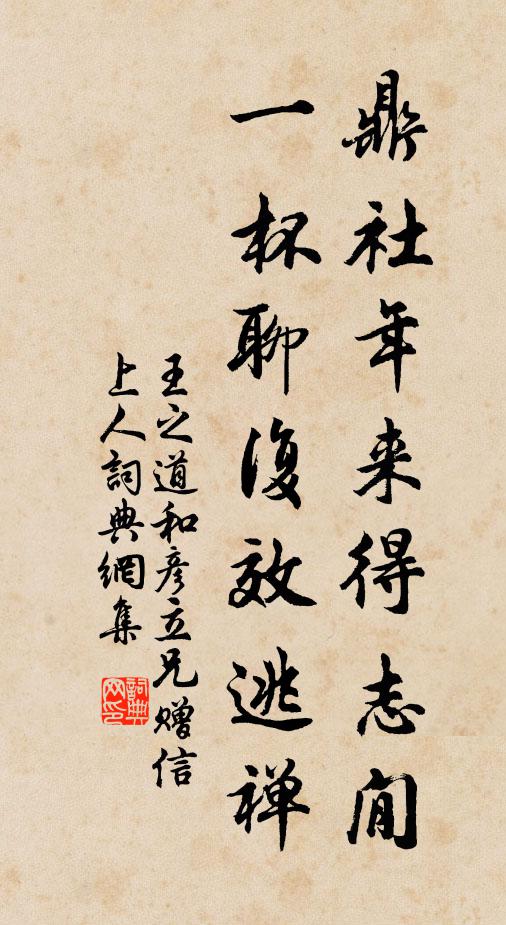 鼎社年来得志閒
一杯聊復效逃禅
王之道和彦立兄赠信
上人詞典網集
詞典网印